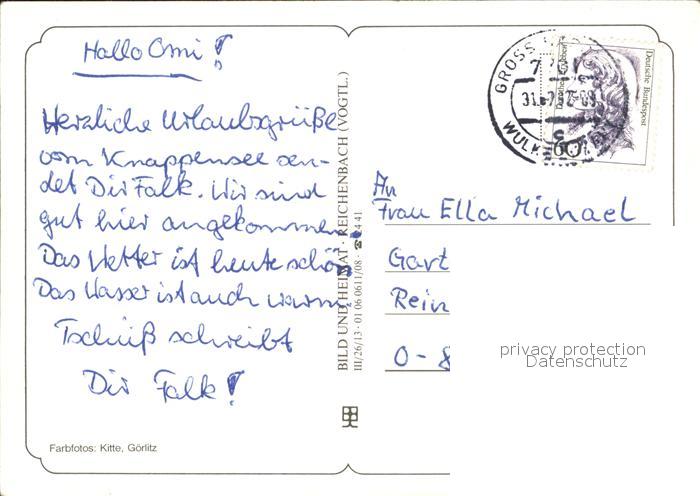 Hallo Omi!
Herzliche Urlaubsgrüße
vom Knappensee sen-
det Dir Falk. Wir sind
gut hier angekommen.
Das Wetter ist heute schön
Das Wasser ist auch warm.
Tschüß schreibt
Dir Falk!
Farbfotos: Kitte, Görlitz
BILD UND HEIMAT · REICHENBACH (VOGTL.)
III/26/13 · 01 06 0611/08 · ☎ 44 41
GROSS
60
Deutsche Bundespost
An
Frau Ella Michael
Gart
Rein
O-8
privacy protection
Datenschutz